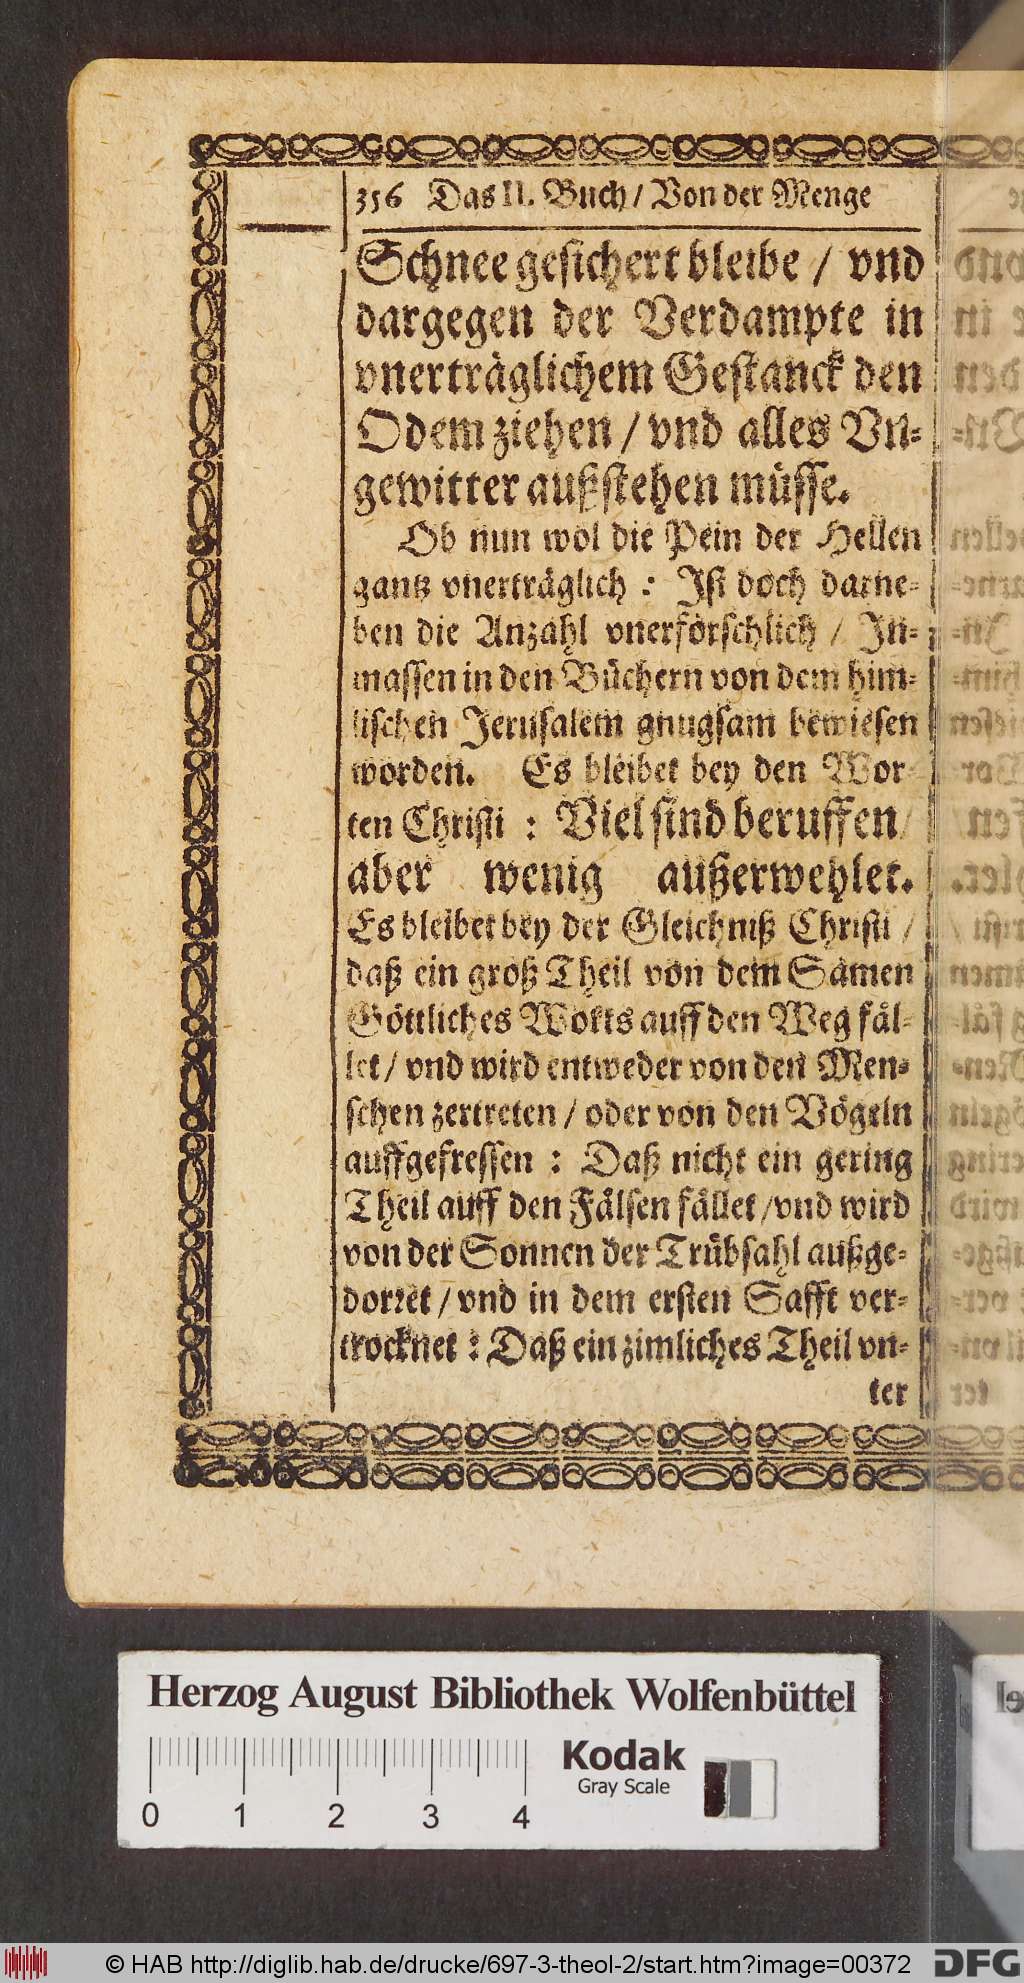 356 Das II. Buch / Von der Menge
Schnee gesichert bleibe / vnd
dargegen der Verdampte in
vnerträglichem Gestanck den
Odem ziehen / vnd alles Vn⸗
gewitter außstehen müsse.
Ob nun wol die Pein der Hellen
gantz vnerträglich : Ist doch darne⸗
ben die Anzahl vnerforschlich / In⸗
massen in den Büchern von dem him⸗
lischen Jerusalem gnugsam bewiesen
worden. Es bleibet bey den Wor⸗
ten Christi : Viel sind beruffen /
aber wenig außerwehlet.
Es bleibet bey der Gleichniß Christi /
daß ein groß Theil von dem Samen
Göttliches Worts auff den Weg fäl⸗
let / vnd wird entweder von den Men⸗
schen zertreten / oder von den Vögeln
auffgefressen : Daß nicht ein gering
Theil auff den Fälsen fället / vnd wird
von der Sonnen der Trübsahl außge⸗
dorret / vnd in dem ersten Safft ver⸗
trocknet : Daß ein zimliches Theil vn⸗
ter
Herzog August Bibliothek Wolfenbüttel
Kodak
Gray Scale
0 1 2 3 4
© HAB http://diglib.hab.de/drucke/697-3-theol-2/start.htm?image=00372
DFG